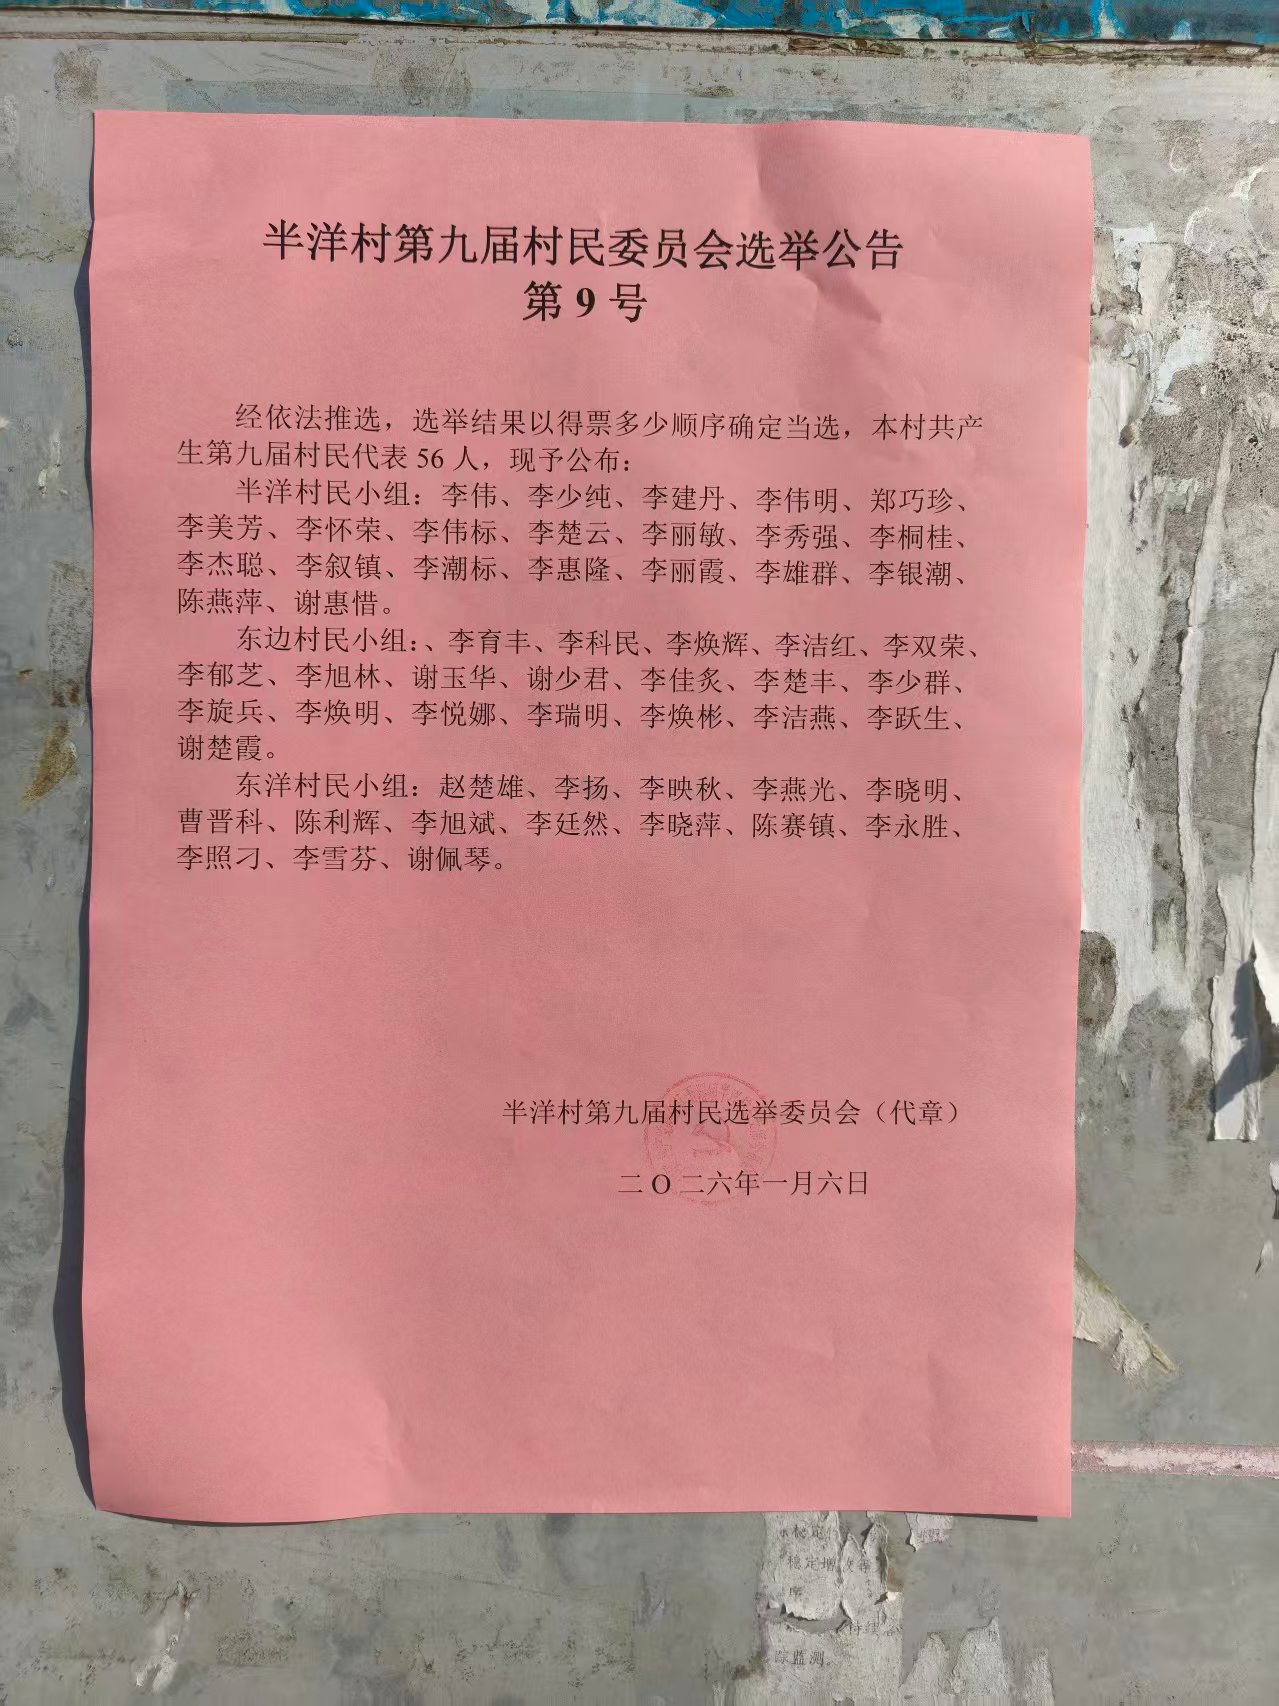 半洋村第九届村民委员会选举公告
第 9 号
经依法推选，选举结果以得票多少顺序确定当选，本村共产
生第九届村民代表 56 人，现予公布：
半洋村民小组：李伟、李少纯、李建丹、李伟明、郑巧珍、
李美芳、李怀荣、李伟标、李楚云、李丽敏、李秀强、李桐桂、
李杰聪、李叙镇、李潮标、李惠隆、李丽霞、李雄群、李银潮、
陈燕萍、谢惠惜。
东边村民小组：、李育丰、李科民、李焕辉、李洁红、李双荣、
李郁芝、李旭林、谢玉华、谢少君、李佳炙、李楚丰、李少群、
李旋兵、李焕明、李悦娜、李瑞明、李焕彬、李洁燕、李跃生、
谢楚霞。
东洋村民小组：赵楚雄、李扬、李映秋、李燕光、李晓明、
曹晋科、陈利辉、李旭斌、李廷然、李晓萍、陈赛镇、李永胜、
李照刁、李雪芬、谢佩琴。
半洋村第九届村民选举委员会（代章）
二 O 二六年一月六日
稳定增
序
踪监测。